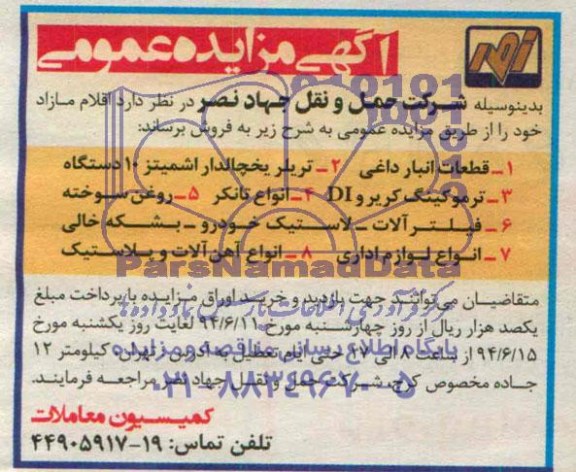 آگهی مزایده عمومی
نصر
بدینوسیله شرکت حمل و نقل جهاد نصر در نظر دارد اقلام مازاد
خود را از طریق مزایده عمومی به شرح زیر به فروش برساند:
۱ـ قطعات انبار داغی ۲ـ تریلر یخچالدار اشمیتز ۱۰ دستگاه
۳ـ ترموکینگ کریر و DI ۴ـ انواع تانکر ۵ـ روغن سوخته
۶ـ فیلتر آلات ـ لاستیک خودرو ـ بشکه خالی
۷ـ انواع لوازم اداری ۸ـ انواع آهن آلات و پلاستیک
ParsNamadData
متقاضیان می‌توانند جهت بازدید و خرید اوراق مزایده با پرداخت مبلغ
یکصد هزار ریال از روز چهارشنبه مورخ ۹۴/۶/۱۱ لغایت روز یکشنبه مورخ
۹۴/۶/۱۵ از ساعت ۸ الی ۱۷ حتی ایام تعطیل به آدرس: تهران، کیلومتر ۱۲
پایگاه اطلاع رسانی مناقصه و مزایده
جاده مخصوص کرج، شرکت حمل و نقل جهاد نصر مراجعه فرمایند.
۰۲۱-۸۸۳۴۹۶۷۰-۵
کمیسیون معاملات
تلفن تماس: ۱۹-۴۴۹۰۵۹۱۷